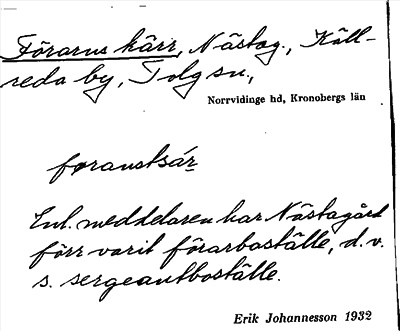 Förarns kärr, Nästag., Käll-
reda by, Tolg sn.,
Norrvidinge hd, Kronobergs län
foranstsár
Enl. meddelaren har Nästagård
förr varit förarboställe, d.v.
s. sergeantboställe.
Erik Johannesson 1932